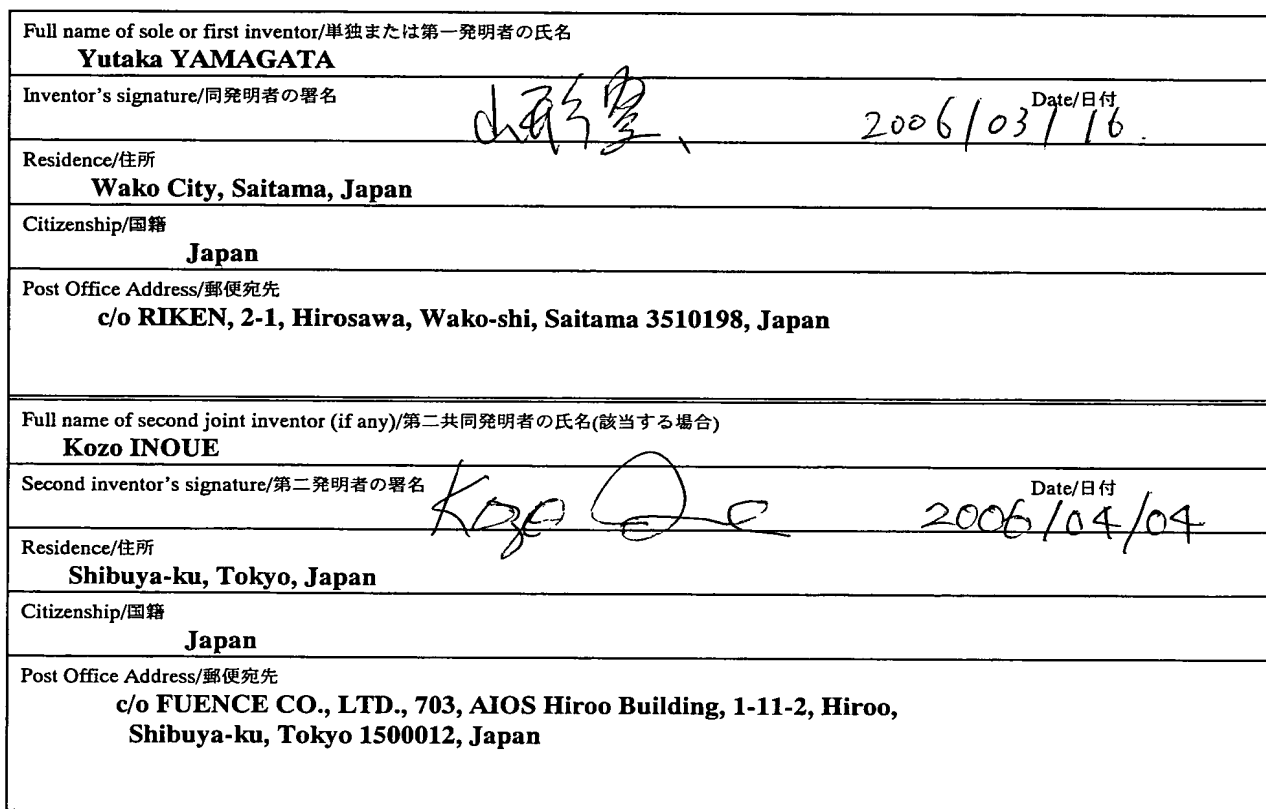 Full name of sole or first inventor/単独または第一発明者の氏名
Yutaka YAMAGATA
Inventor's signature/同発明者の署名 山形豊 Date/日付 2006/03/16.
Residence/住所
Wako City, Saitama, Japan
Citizenship/国籍
Japan
Post Office Address/郵便宛先
c/o RIKEN, 2-1, Hirosawa, Wako-shi, Saitama 3510198, Japan
Full name of second joint inventor (if any)/第二共同発明者の氏名(該当する場合)
Kozo INOUE
Second inventor's signature/第二発明者の署名 Kozo Date/日付 2006/04/04
Residence/住所
Shibuya-ku, Tokyo, Japan
Citizenship/国籍
Japan
Post Office Address/郵便宛先
c/o FUENCE CO., LTD., 703, AIOS Hiroo Building, 1-11-2, Hiroo,
Shibuya-ku, Tokyo 1500012, Japan